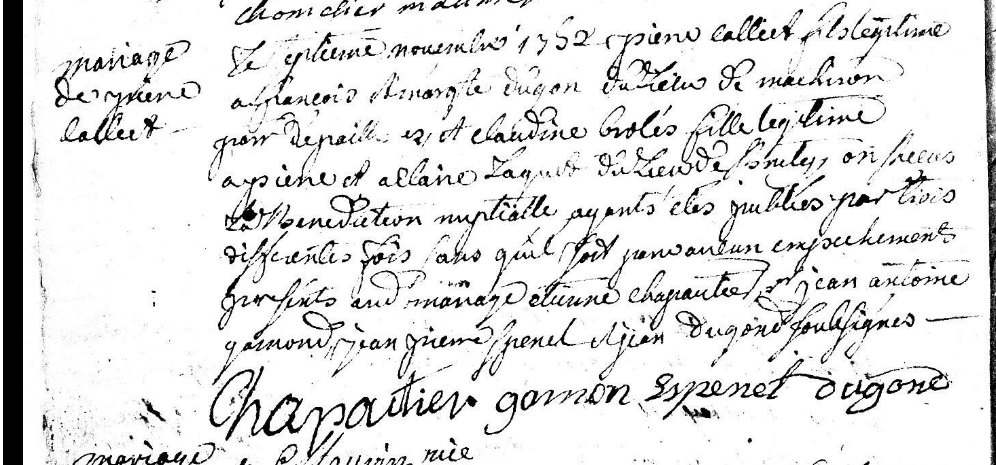 mariage
de pierre
Callect
Le septieme novembre 1752 pierre Callect fils legitime
a françois et margte dugon du lieu de machinon
et Claudine brolés fille legitime
a pierre et du lieu de on Receus
La Benediction nuptialle ayants etes publiés par trois
differentes fois sans quil soit paru aucun empechement
presents aud mariage etienne chapautier jean antoine
gamond, jean pierre Espenel et jean dugond soussignes
Chapautier gamon Espenel dugond
mariage